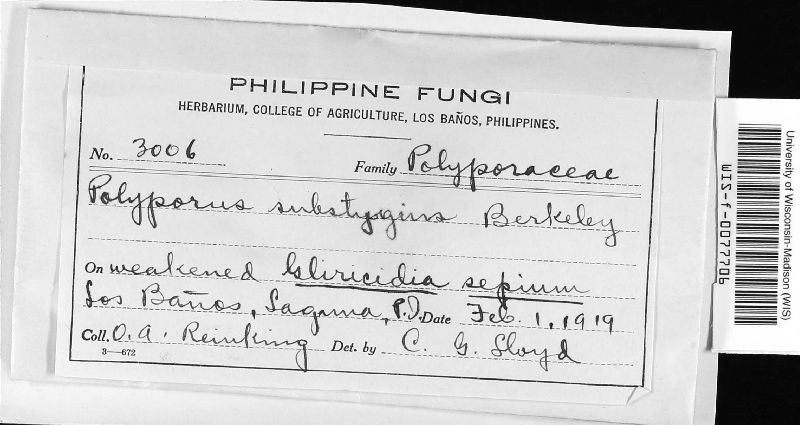 PHILIPPINE FUNGI
HERBARIUM, COLLEGE OF AGRICULTURE, LOS BAÑOS, PHILIPPINES.
No. 3006 Family Polyporaceae
Polyporus substygius Berkeley
On weakened Gliricidia sepium
Los Baños, Laguna, P.I. Date Feb. 1, 1919
Coll. O. A. Reinking Det. by C. G. Lloyd
3—672
University of Wisconsin-Madison (WIS)
WIS-f-0077706